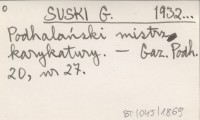 SUSKI G. 1932...
Podhalański mistrz
karykatury. — Gaz. Podh.
20, nr 27.